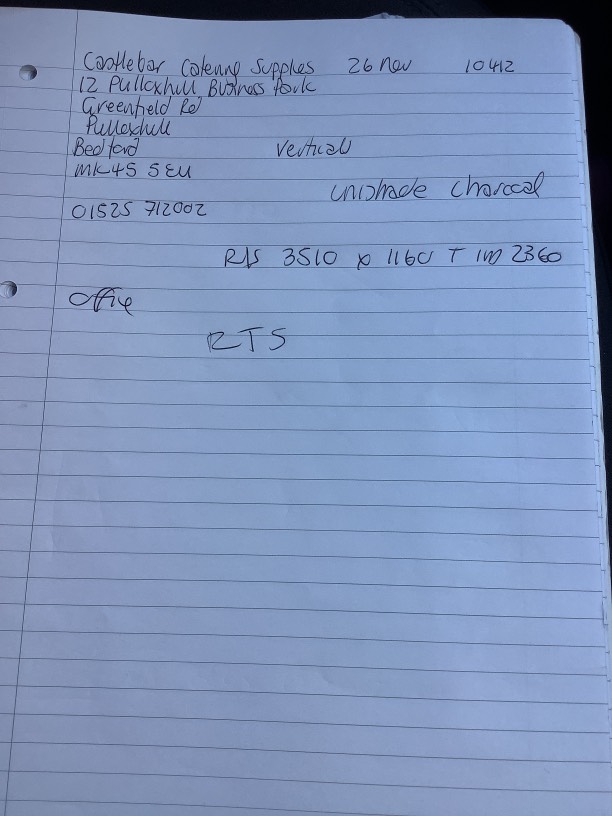 Castlebar Catering Supplies 26 Nov 10412
12 Pulloxhill Business Park
Greenfield Rd
Pulloxhill
Bedford Vertical
MK45 5EU
Unishade Charcoal
01525 712002
R/S 3510 x 1160 T 2360
Office
RTS